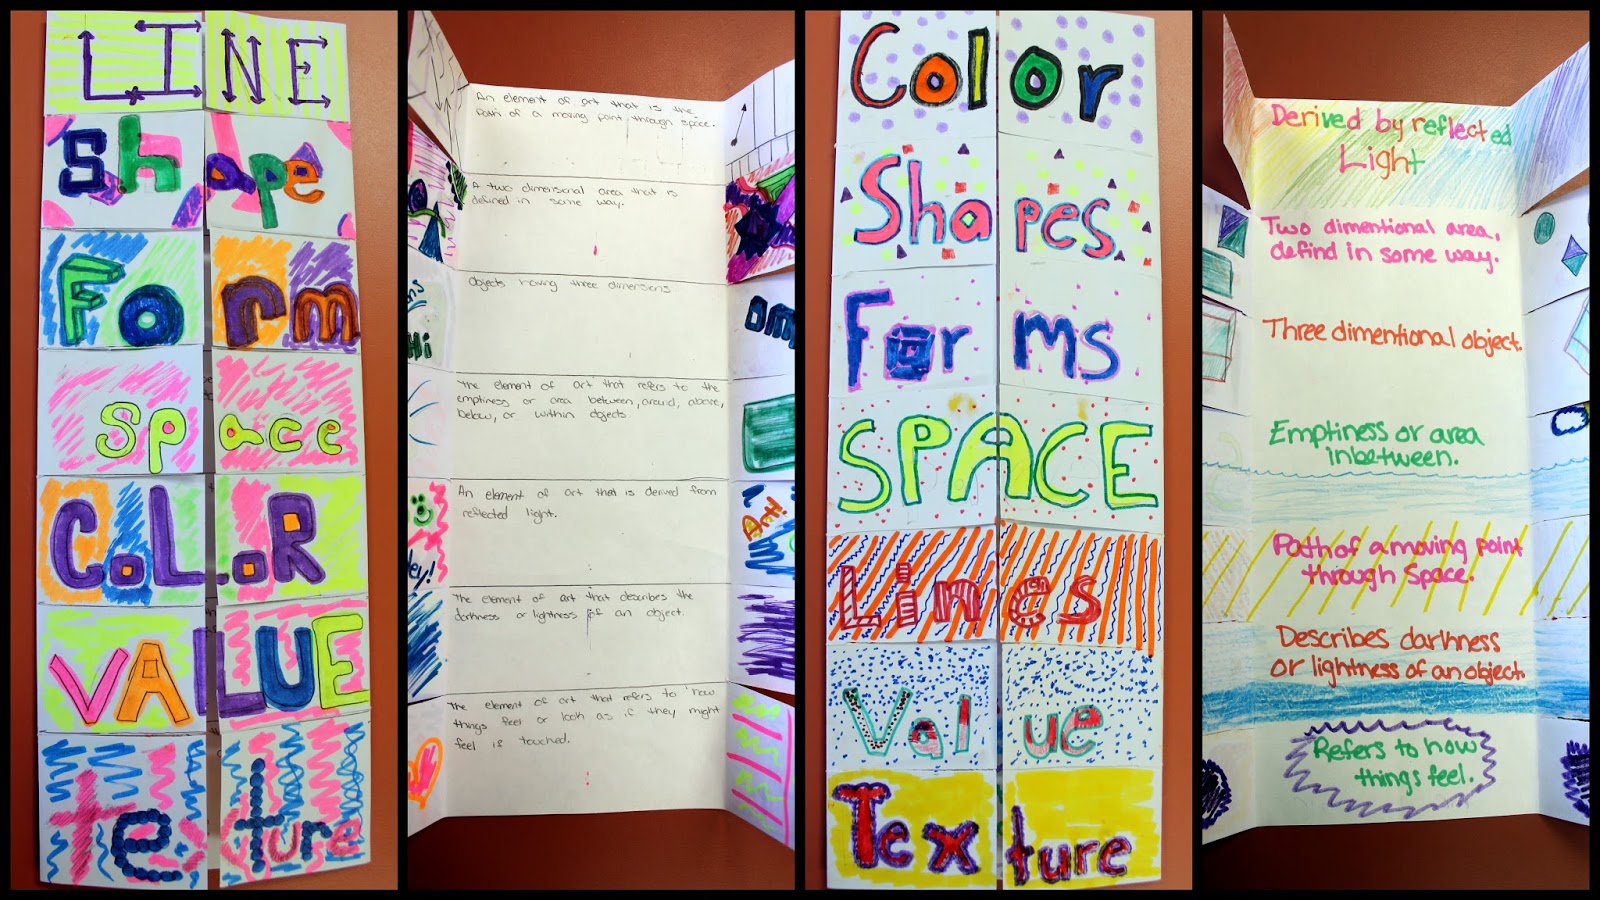 LINE
Shape
Form
Space
COLOR
VALUE
Texture
An element of art that is the
path of a moving point through space.
A two dimensional area that is
defined in some way.
Objects having three dimensions
The element of art that refers to the
emptiness or area between, around, above,
below, or within objects.
An element of art that is derived from
reflected light.
The element of art that describes the
darkness or lightness of an object.
The element of art that refers to how
things feel or look as if they might
feel is touched.
Hi
om
Art!
Hey!
Color
Shapes
Forms
SPACE
Lines
Value
Texture
Derived by reflected
Light
Two dimentional area,
defind in some way.
Three dimentional object.
Emptiness or area
inbetween.
Path of a moving point
through space.
Describes darkness
or lightness of an object.
Refers to how
things feel.